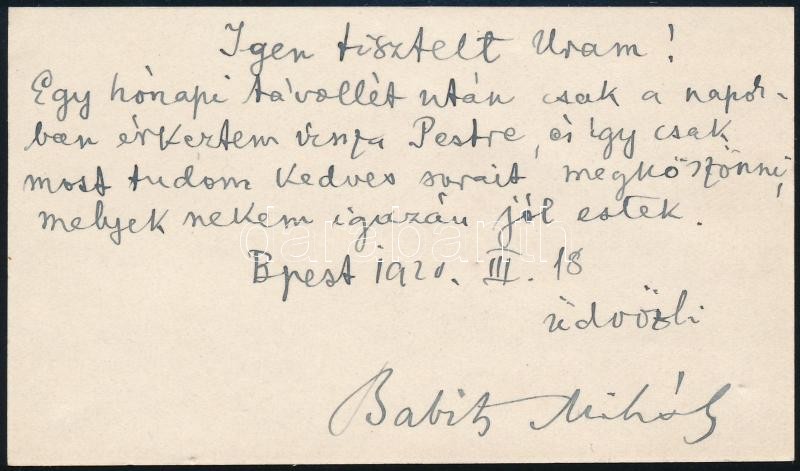 Igen tisztelt Uram!
Egy hónapi távollét után csak a napok-
ban érkeztem vissza Pestre, és így csak
most tudom kedves sorait megköszönni,
melyek nekem igazán jól estek.
darabanth
Bpest 1920. III. 18
üdvözli
Babits Mihály